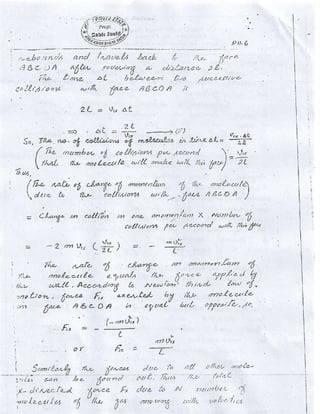 rebounds and travels back to the face
ABCDA after covering a distance 2l.
The time Δt between two successive
collisions with face ABCDA is
2L = V₁ₓ Δt
⇒ Δt = 2L / V₁ₓ →(1)
So, The no. of collisions of molecules in time Δt =
(The number of collisions per second
that the molecule will make with this face) = V₁ₓ / 2L
Thus,
(The rate of change of momentum of the molecule
due to the collisions with face ABCDA)
= Change in momentum X Number of
collisions per second with this face
= -2 m V₁ₓ (V₁ₓ / 2L) = - mV₁ₓ² / L
The rate of change in momentum of
the molecule equals the force applied by
the wall. According to Newton' third law of
motion, force F₁ₓ exerted by the molecule
on face ABCDA is equal but opposite, so,
F₁ₓ = - (-mV₁ₓ²) / L
or F₁ₓ = mV₁ₓ² / L
Similarly the forces due to all other mole-
cules can be found out. Thus the total
x-directed force Fₓ due to N number of
molecules of the gas moving with velocities